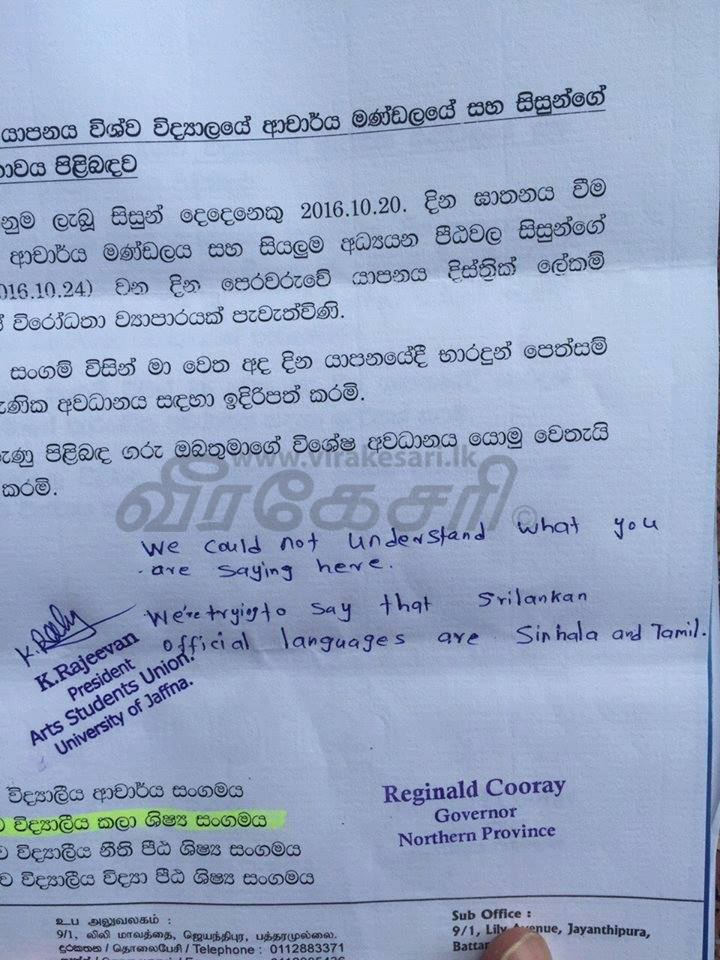 යාපනය විශ්ව විද්‍යාලයේ ආචාර්ය මණ්ඩලයේ සහ සිසුන්ගේ
පිළිබඳව
ලැබූ සිසුන් දෙදෙනෙකු 2016.10.20. දින ඝාතනය වීම
ආචාර්ය මණ්ඩලය සහ සියලුම අධ්‍යයන පීඨවල සිසුන්ගේ
016.10.24) වන දින පෙරවරුවේ යාපනය දිස්ත්‍රික් ලේකම්
විරෝධතා ව්‍යාපාරයක් පැවැත්විණි.
සංගම් විසින් මා වෙත අද දින යාපනයේදී භාරදුන් පෙත්සම්
අවධානය සඳහා ඉදිරිපත් කරමි.
පිළිබඳ ගරු ඔබතුමාගේ විශේෂ අවධානය යොමු වෙතැයි
කරමි.
www.virakesari.lk
வீரகேசரி ©
We could not understand what you
are saying here.
We're trying to say that Srilankan
official languages are Sinhala and Tamil.
K.Rajeevan
President
Arts Students Union.
University of Jaffna.
විද්‍යාලීය ආචාර්ය සංගමය
විද්‍යාලීය කලා ශිෂ්‍ය සංගමය
විද්‍යාලීය නීති පීඨ ශිෂ්‍ය සංගමය
විද්‍යාලීය විද්‍යා පීඨ ශිෂ්‍ය සංගමය
Reginald Cooray
Governor
Northern Province
உப அலுவலகம் :
9/1, லிலி மாவத்தை, ஜெயந்திபுர, பத்தரமுல்லை.
දුරකතන / தொலைபேசி / Telephone : 0112883371
Sub Office :
9/1, Lily Avenue, Jayanthipura,